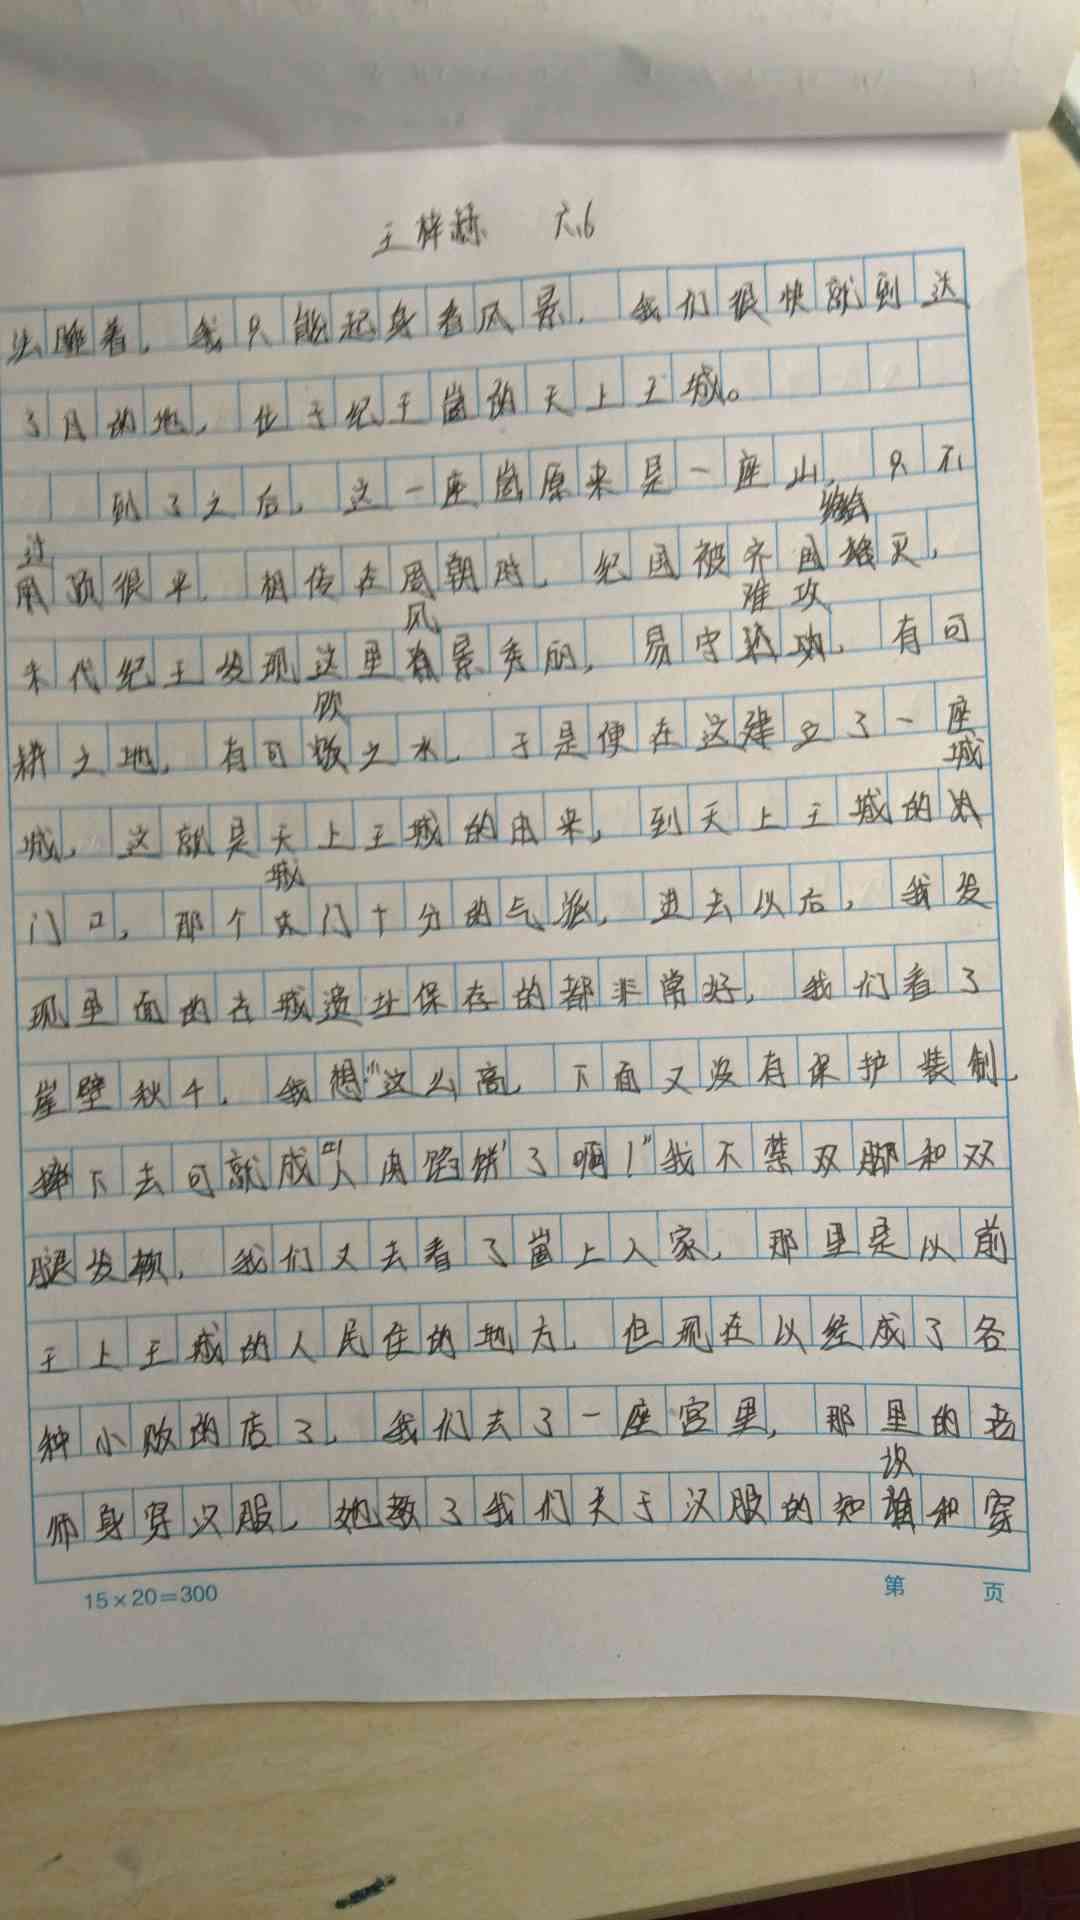 王梓 六.6
法睡着,我只能起身看风景,我们很快就到达
了目的地,位于纪王崮的天上王城。
到了之后,这一座崮原来是一座山,只不
过顶很平,相传在周朝时,纪国被齐国给灭,
末代纪王发现这里风景秀丽,易守难攻,有可
耕之地,有可饮之水,于是便在这建立了一座
城,这就是天上王城的由来,到天上王城的城
门口,那个城门十分的气派,进去以后,我发
现里面的古城遗址保存的都非常好,我们看了
崖壁秋千,我想:“这么高,下面又没有保护装制,
摔下去可就成“人肉馅饼”了啊!”我不禁双脚和双
腿发颤,我们又去看了崮上人家,那里是以前
王上王城的人民住的地方,但现在以经成了各
种小贩的店了,我们去了一座宫里,那里的老
师身穿汉服,她教了我们关于汉服的知识和穿
15×20=300 第 页